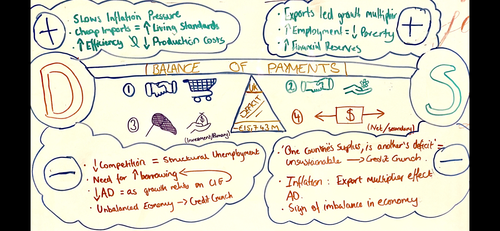 +
Slows Inflation Pressure
Cheap Imports = ↑ Living Standards
↑ Efficiency & ↓ Production Costs
+
Exports led growth multiplier
↑ Employment = ↓ Poverty
↑ Financial Reserves
BALANCE OF PAYMENTS
D
S
①
②
③
④
UK
DEFICIT
£15,743M
(Investment/Primary)
$
(Net/Secondary)
−
↓ Competition = Structural Unemployment
Need for ↑ borrowing
↓ AD = as growth relies on C I G
Unbalanced Economy → Credit Crunch
−
'One Countries Surplus, is another's deficit' =
unsustainable → Credit Crunch.
Inflation : Export multiplier effect
AD.
Sign of imbalance in economy